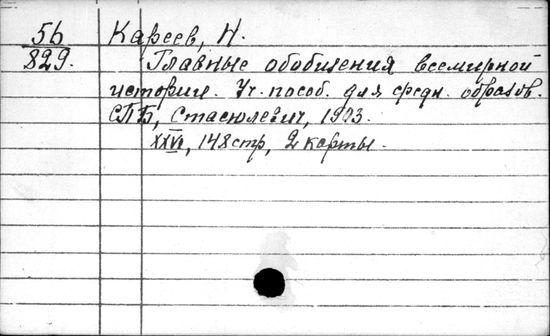 56 Кареев, Н.
829. Главные обобщения всемирной
истории. Уч. пособ. для средн. образов.
СПБ, Стасюлевич, 1903.
XXVI, 148 стр, 2 карты.